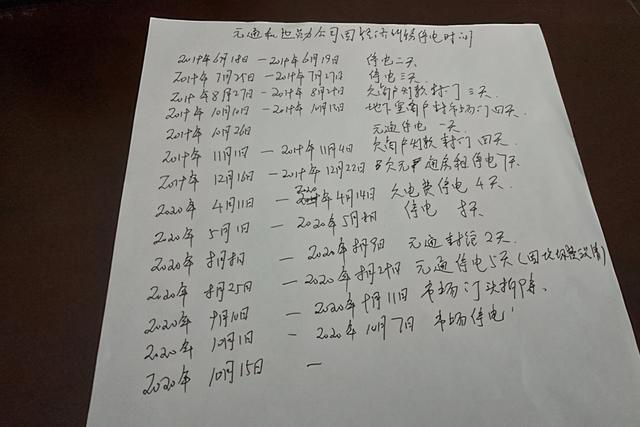 元通机电公司因经济纠纷停电时间
2019年6月18日 — 2019年6月19日 停电二天
2019年7月25日 — 2019年7月27日 停电三天
2019年8月27日 — 2019年8月29日 欠商户对款封门三天
2019年10月10日 — 2019年10月13日 地下室商户封市场门四天
2019年10月26日 元通停电一天
2019年11月1日 — 2019年11月4日 欠商户对款封门四天
2019年12月16日 — 2019年12月22日 欠元通房租停电7天
2020年4月11日 — 2020年4月14日 欠电费停电4天
2020年5月1日 — 2020年5月8日 停电8天
2020年8月8日 — 2020年8月9日 元通封馆2天
2020年8月25日 — 2020年8月29日 元通停电5天(因垃圾
2020年9月10日 — 2020年9月11日 市场门头拆
2020年10月1日 — 2020年10月7日 市场停电
2020年10月15日 —